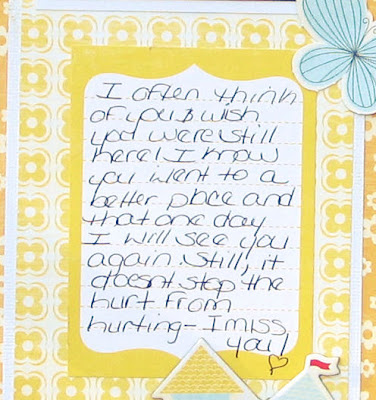 I often think
of you & wish
you were still
here! I know
you went to a
better place and
that one day
I will see you
again. Still, it
doesnt stop the
hurt from
hurting - I miss
you!